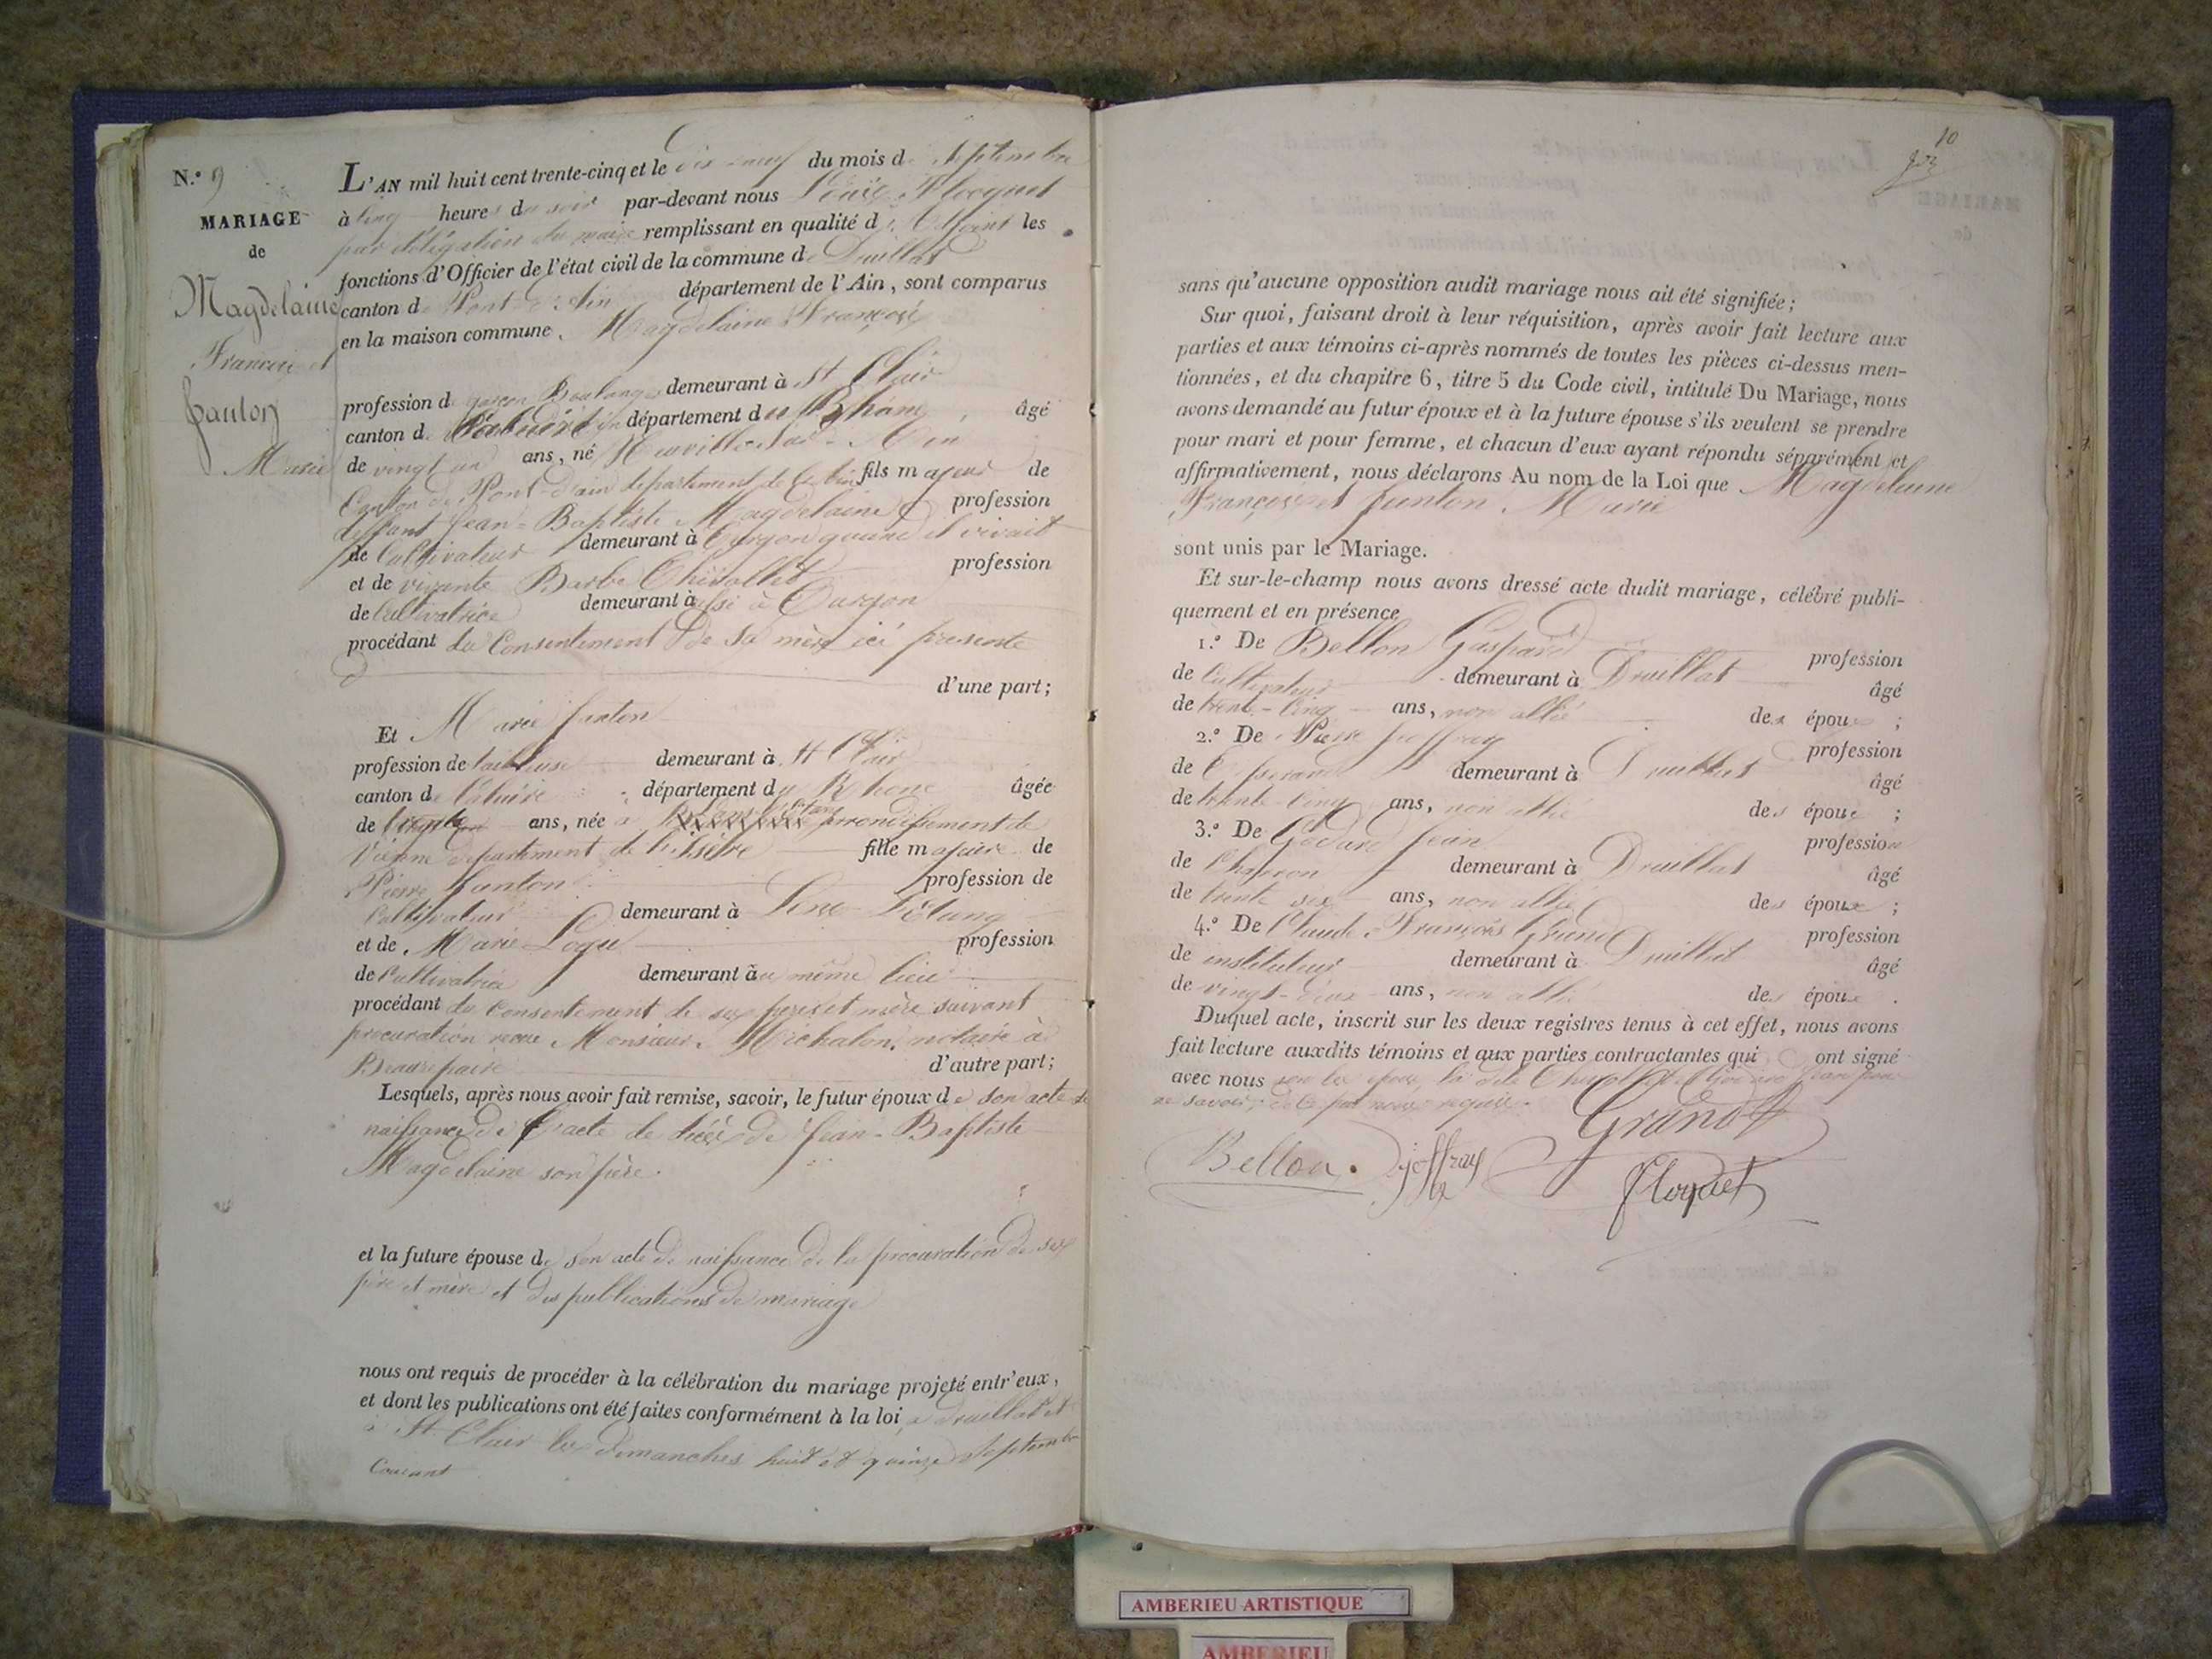 N.° 9
MARIAGE
de
Magdelaine
François et
Janton
Marie
L'AN mil huit cent trente-cinq et le dix-neuf du mois de Septembre
à cinq heures du soir par-devant nous Louis Flocquet
par délégation du maire remplissant en qualité d'Adjoint les
fonctions d'Officier de l'état civil de la commune de Druillat
canton de Pont-d'Ain département de l'Ain, sont comparus
en la maison commune, Magdelaine François
profession de garçon Boulanger demeurant à St Clair
canton de département du Rhône, âgé
de vingt un ans, né Neuville-sur-Ain
Canton de Pont-d'ain département de l'ain fils majeur de
deffunt Jean-Baptiste Magdelaine profession
de Cultivateur demeurant à quand il vivait
et de vivante Barbe profession
de Cultivatrice demeurant à
procédant du Consentement de sa mère ici présente
d'une part;
Et Marie Janton
profession de tailleuse demeurant à St Clair
canton de Caluire département du Rhone âgée
de ans, née à arrondissement de
Vienne département de l'issère fille majeure de
Pierre Janton profession de
Cultivateur demeurant à
et de Marie profession
de Cultivatrice demeurant au même lieu
procédant du consentement de ses père et mère suivant
procuration recue Monsieur Michalon, notaire à
Beaurepaire d'autre part;
Lesquels, après nous avoir fait remise, savoir, le futur époux de son acte de
naissance de l'acte de décès de Jean-Baptiste
Magdelaine son père.
et la future épouse de son acte de naissance de la procuration de ses
père et mère et des publications de mariage
nous ont requis de procéder à la célébration du mariage projeté entr'eux,
et dont les publications ont été faites conformément à la loi, à Druillat et
à St Clair les dimanches huit et quinze Septembre
Courant
10
sans qu'aucune opposition audit mariage nous ait été signifiée;
Sur quoi, faisant droit à leur réquisition, après avoir fait lecture aux
parties et aux témoins ci-après nommés de toutes les pièces ci-dessus men-
tionnées, et du chapitre 6, titre 5 du Code civil, intitulé Du Mariage, nous
avons demandé au futur époux et à la future épouse s'ils veulent se prendre
pour mari et pour femme, et chacun d'eux ayant répondu séparément et
affirmativement, nous déclarons Au nom de la Loi que Magdelaine
François et Janton Marie
sont unis par le Mariage.
Et sur-le-champ nous avons dressé acte dudit mariage, célébré publi-
quement et en présence
1.° De Bellon Gaspard profession
de Cultivateur demeurant à Druillat âgé
de trente-cinq ans, non allié des époux;
2.° De Pierre Joffray profession
de demeurant à Druillat âgé
de trente-cinq ans, non allié des époux;
3.° De Godard Jean profession
de Charron demeurant à Druillat âgé
de trente six ans, non allié des époux;
4.° De Claude François Grand profession
de instituteur demeurant à Druillat âgé
de vingt-deux ans, non allié des époux.
Duquel acte, inscrit sur les deux registres tenus à cet effet, nous avons
fait lecture auxdits témoins et aux parties contractantes qui ont signé
avec nous non les époux
ne savoir, de ce par nous requis.
Grand
Bellon. Joffray
Floquet
AMBERIEU ARTISTIQUE
AMBERIEU